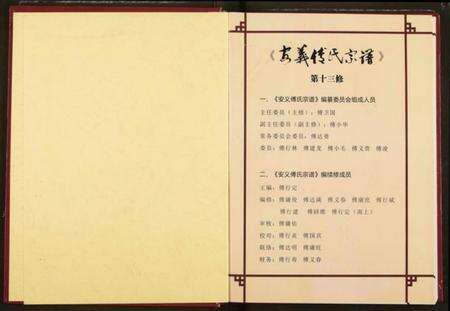 《安義傅氏宗谱》
第十三修
一、《安义傅氏宗谱》编纂委员会组成人员
主任委员（主修）：傅卫国
副主任委员（副主修）：傅小华
常务委员会委员：傅达勇
委员：傅行林 傅建龙 傅小毛 傅义贵 傅凌
二、《安义傅氏宗谱》编续修成员
主编：傅行定
编修：傅黼俊 傅达满 傅义春 傅黼宽 傅行斌
傅行建 傅行定（南上）
审核：傅黼佑
校对：傅行炎 傅国宾
联络：傅达明 傅黼旺
财务：傅行寿 傅义春